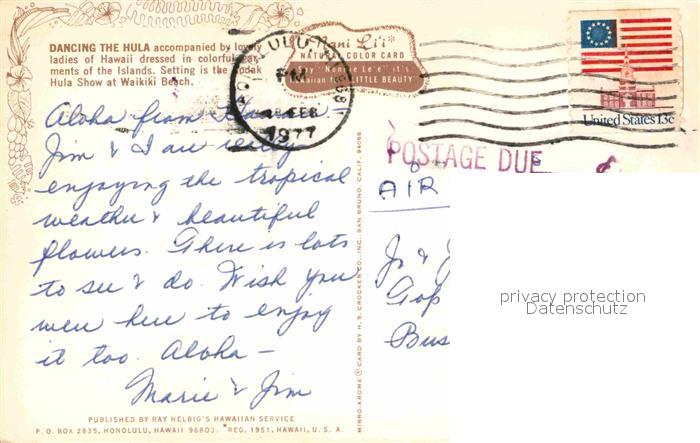 DANCING THE HULA accompanied by lovely
ladies of Hawaii dressed in colorful gar-
ments of the Islands. Setting is the Kodak
Hula Show at Waikiki Beach.
Nani Li'i*
NATURAL COLOR CARD
Say "Nannie Lee'e" it's
Hawaiian for LITTLE BEAUTY
HONOLULU
PM
FEB
1977
United States 13c
POSTAGE DUE
AIR
Aloha from
Jim & I are really
enjoying the tropical
weather & beautiful
flowers. There is lots
to see & do. Wish you
were here to enjoy
it too. Aloha —
Marie & Jim
Gop
Bus
privacy protection
Datenschutz
MIRRO-KROME ® CARD BY H. S. CROCKER CO., INC., SAN BRUNO, CALIF. 94066
PUBLISHED BY RAY HELBIG'S HAWAIIAN SERVICE
P. O. BOX 2835, HONOLULU, HAWAII 96803. *REG. 1951, HAWAII, U. S. A.